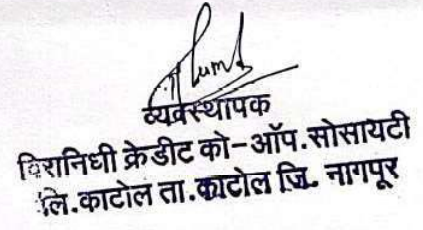 व्यवस्थापक
विरानिधी क्रेडीट को-ऑप.सोसायटी
लि.काटोल ता.काटोल जि. नागपूर